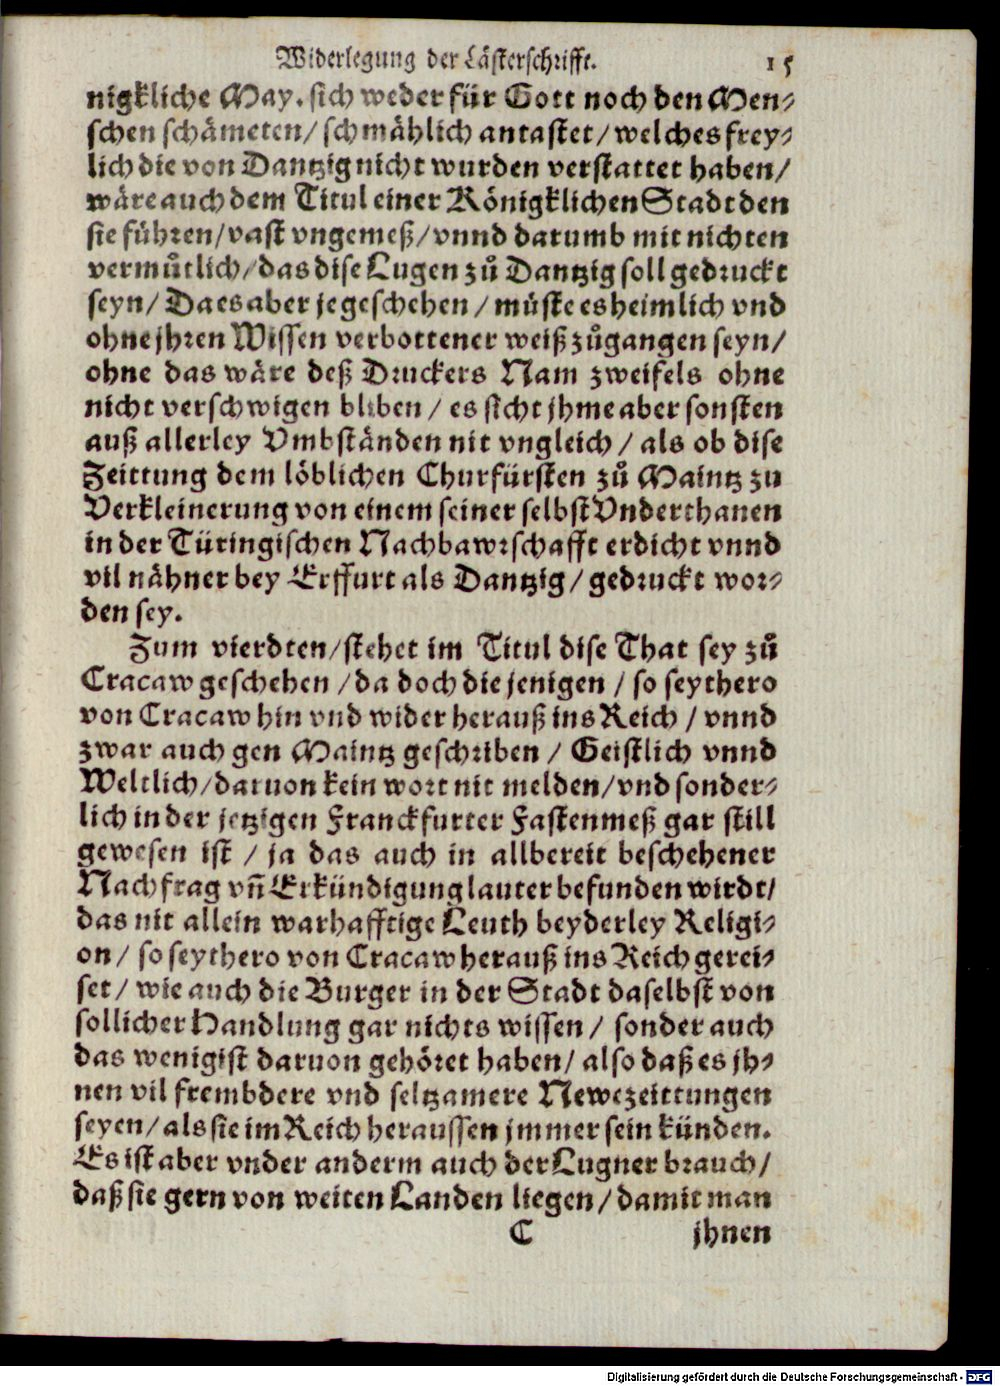 Widerlegung der Lästerschrifft. 15
nigkliche May. sich weder für Gott noch den Men-
schen schämeten/ schmählich antastet/ welches frey-
lich die von Dantzig nicht wurden verstattet haben/
wäre auch dem Titul einer Königklichen Stadt den
sie führen/ vast vngemeß/ vnnd darumb mit nichten
vermuͦtlich/ das dise Lugen zuͦ Dantzig soll gedruckt
seyn/ Da es aber je geschehen/ müste es heimlich vnd
ohne jhren Wissen verbottener weiß zuͦgangen seyn/
ohne das wäre deß Druckers Nam zweifels ohne
nicht verschwigen bliben/ es sicht jhme aber sonsten
auß allerley Vmbständen nit vngleich/ als ob dise
Zeittung dem löblichen Churfürsten zuͦ Maintz zu
Verkleinerung von einem seiner selbst Vnderthanen
in der Türingischen Nachbawrschafft erdicht vnnd
vil nähner bey Erffurt als Dantzig/ gedruckt wor-
den sey.
Zum vierdten/ stehet im Titul dise That sey zuͦ
Cracaw geschehen/ da doch die jenigen/ so seythero
von Cracaw hin vnd wider herauß ins Reich/ vnnd
zwar auch gen Maintz geschriben/ Geistlich vnnd
Weltlich/ daruon kein wort nit melden/ vnd sonder-
lich in der jetzigen Franckfurter Fastenmeß gar still
gewesen ist/ ja das auch in allbereit beschehener
Nachfrag vñ Erkündigung lauter befunden wirdt/
das nit allein warhafftige Leuth beyderley Religi-
on/ so seythero von Cracaw herauß ins Reich gerei-
set/ wie auch die Burger in der Stadt daselbst von
sollicher Handlung gar nichts wissen/ sonder auch
das wenigist daruon gehöret haben/ also daß es jh-
nen vil frembdere vnd seltzamere Newezeittungen
seyen/ als sie im Reich heraussen jmmer sein künden.
Es ist aber vnder anderm auch der Lugner brauch/
daß sie gern von weiten Landen liegen/ damit man
C jhnen
Digitalisierung gefördert durch die Deutsche Forschungsgemeinschaft - DFG